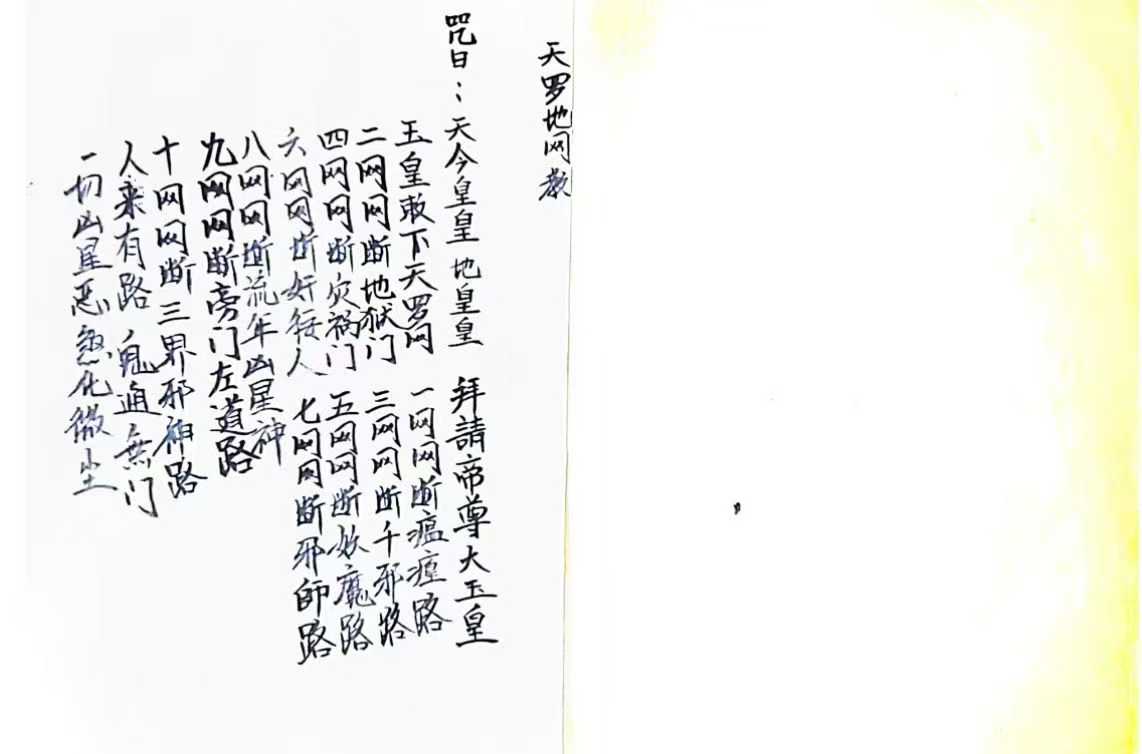 天罗地网教
咒曰：天今皇皇 地皇皇 拜請帝尊大玉皇
玉皇敢下天罗网 一网网断瘟瘴路
二网网断地狱门 三网网断千邪路
四网网断灾祸门 五网网断妖魔路
六网网断奸狡人 七网网断邪師路
八网网断流年凶星神
九网网断旁门左道路
十网网断三界邪神路
人来有路 鬼通無门
一切凶星恶煞化微尘